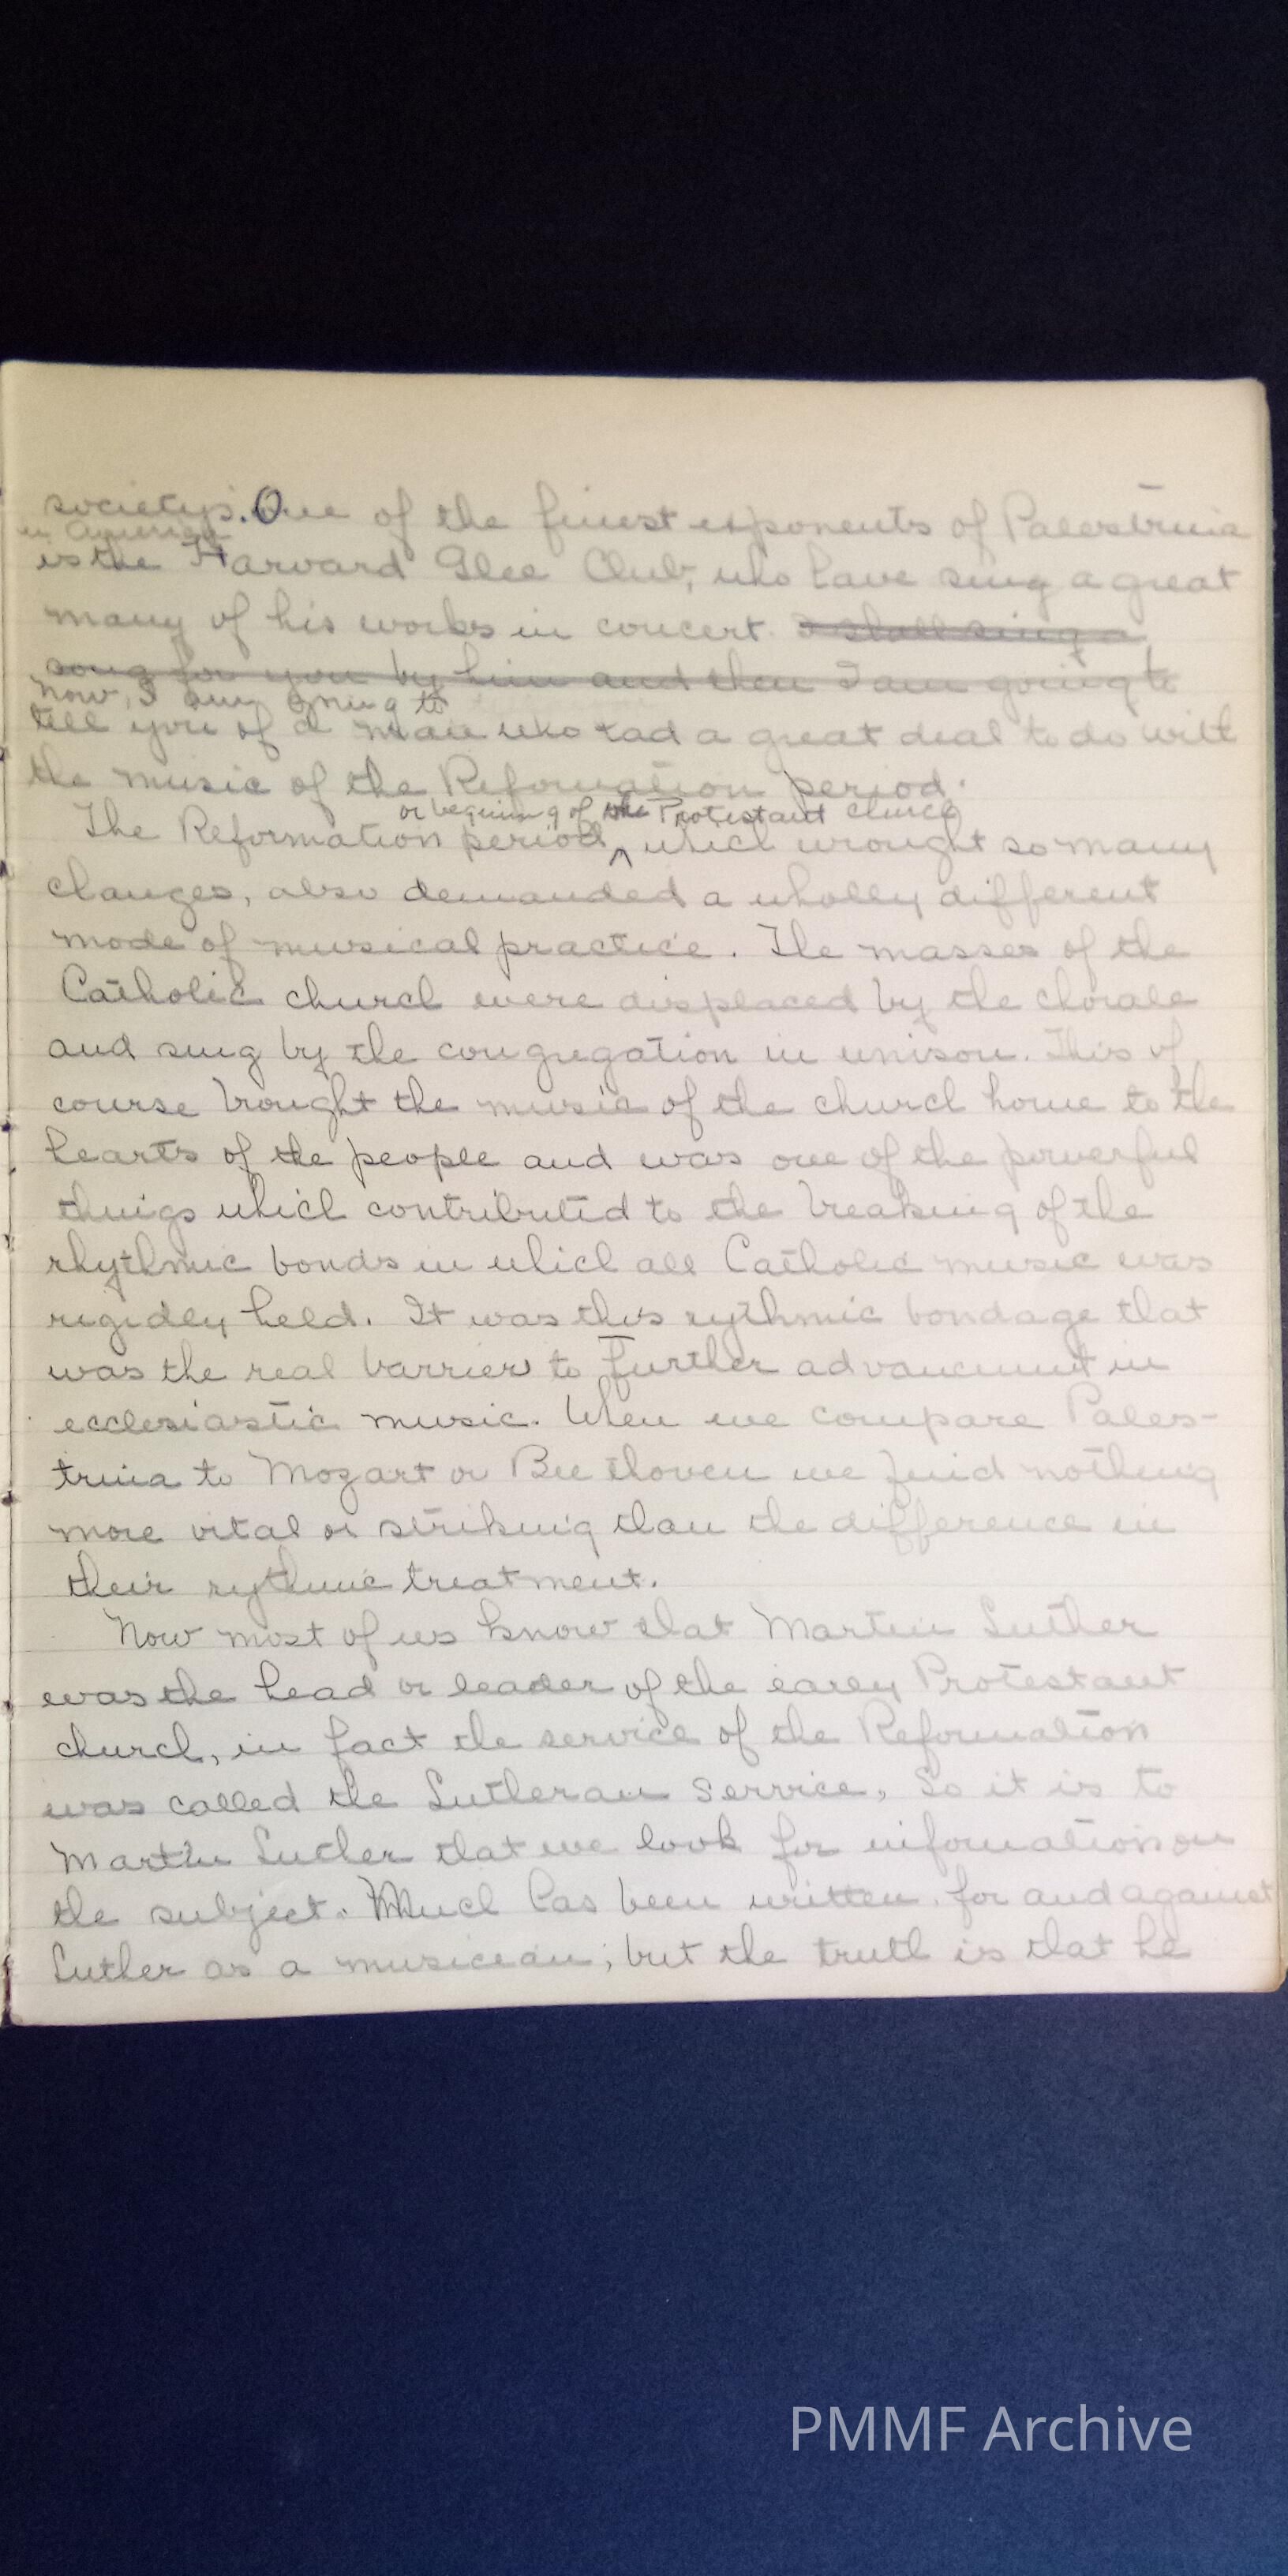 society's. One of the finest exponents of Palestrina
in America
is the Harvard Glee Club, who have sung a great
many of his works in concert. I shall sing a
song for you by him and then I am going to
Now, I am going to
tell you of a man who had a great deal to do with
the music of the Reformation period.
or begining of the Protestant church
The Reformation period ^ which wrought so many
changes, also demanded a wholly different
mode of musical practice. The masses of the
Catholic church were displaced by the chorale
and sung by the congregation in unison. This of
course brought the music of the church home to the
hearts of the people and was one of the powerful
things which contributed to the breaking of the
rhythmic bonds in which all Catholic music was
rigidly held. It was this rythmic bondage that
was the real barrier to further advancement in
ecclesiastic music. When we compare Pales-
trina to Mozart or Beethoven we find nothing
more vital or striking than the difference in
their rythmic treatment.
Now most of us know that Martin Luther
was the head or leader of the early Protestant
church, in fact the service of the Reformation
was called the Lutheran Service, So it is to
Martin Luther that we look for information on
the subject. Much has been written for and against
Luther as a musician; but the truth is that he
PMMF Archive